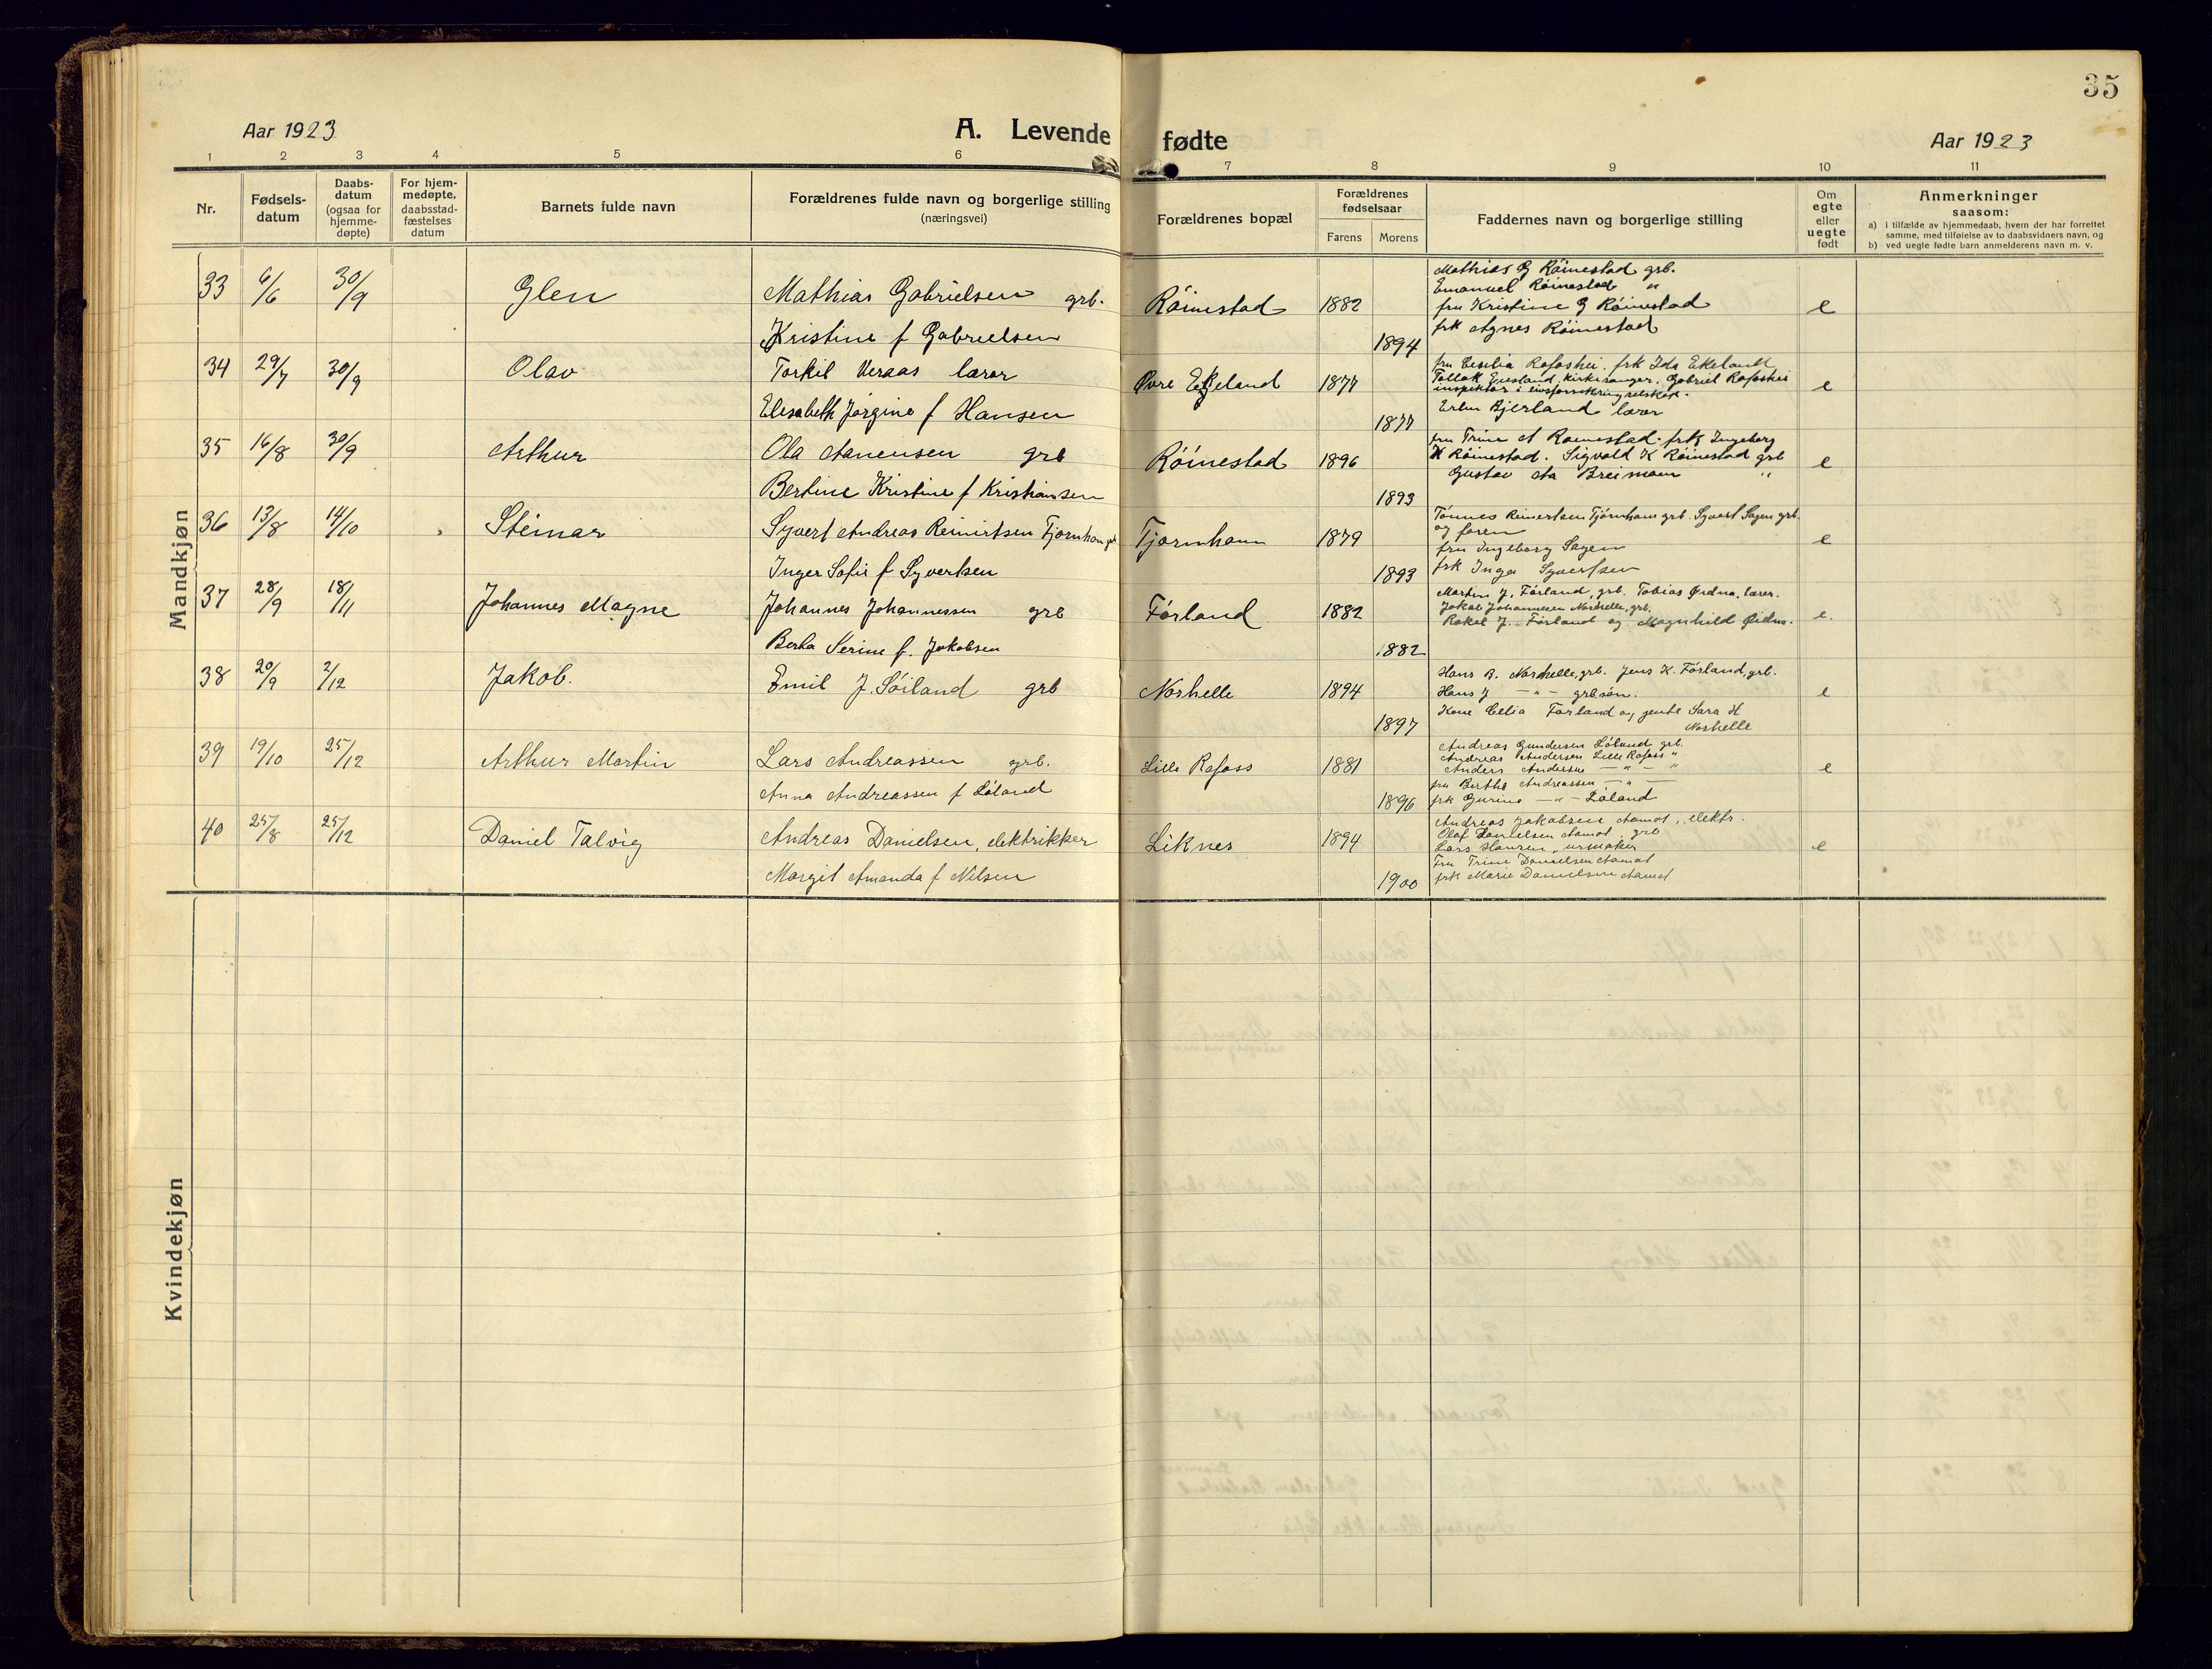 35
Aar 1923
A. Levende fødte
Aar 1923
1 2 3 4 5 6 7 8 9 10 11
Nr.
Fødsels-
datum
Daabs-
datum
(ogsaa for
hjemme-
døpte)
For hjem-
medøpte,
daabsstad-
fæstelses
datum
Barnets fulde navn
Forældrenes fulde navn og borgerlige stilling
(næringsvei)
Forældrenes bopæl
Forældrenes
fødselsaar
Farens Morens
Faddernes navn og borgerlige stilling
Om
egte
eller
uegte
født
Anmerkninger
saasom:
a) i tilfælde av hjemmedaab, hvem der har forrettet
samme, med tilføielse av to daabsvidners navn, og
b) ved uegte fødte barn anmelderens navn m. v.
Mandkjøn
33 6/6 30/9 Glen Mathias Gabrielsen grb. Röinestad 1882 e
Kristine f Gabrielsen 1894
Mathias G Röinestad grb.
Emanuel Röinestad "
fru Kristine G Röinestad
frk Agnes Röinestad
34 29/7 30/9 Olav Torkil Veraas lærer Øvre Egeland 1877 e
Elisabeth Jørgine f Hansen 1877
fru Cecilia Rafoshei. frk Ida Ekeland
Tollak Eiesland, kirkesanger. Gabriel Rafoshei
inspektør i livsforsikringsselskap.
Erlen Bjerland lærer
35 16/8 30/9 Arthur Ola Aanensen grb Röinestad 1896 e
Bertine Kristine f Kristiansen 1893
fru Trine A Röinestad. frk Ingeborg
K Röinestad. Sigvald K Röinestad grb
Gustav Aa Breimoen "
36 13/8 14/10 Steinar Syvert Andreas Reinertsen Tjørnhom grb Tjørnhom 1879 e
Inger Sofie f Syvertsen 1893
Tønnes Reinertsen Tjørnhom grb. Syvert Sagen grb.
og faren
fru Ingeborg Sagen
frk Inga Syvertsen
37 28/9 18/11 Johannes Magne Johannes Johannessen grb Førland 1882 e.
Berta Serine f. Jakobsen 1882
Martin J. Førland, grb. Tobias Øidna, lærer.
Jakob Johannesen Norhelle, grb.
Rakel J. Førland og Magnhild Øidna.
38 20/9 2/12 Jakob. Emil J. Söiland grb Norhelle 1894 e
1897
Hans B. Norhelle, grb. Jens K. Førland, grb.
Hans J — " — grb.søn.
Kone Celia Førland og jente Sara H
Norhelle
39 19/10 25/12 Arthur Martin Lars Andreassen grb. Lille Rafoss 1881 e
Anna Andreassen f Løland 1896
Andreas Gundersen Løland grb.
Andreas Andersen Lille Rafoss "
Anders Andersen — " — "
fru Berthe Andreassen — " —
frk Gurine — " — Løland
40 25/8 25/12 Daniel Talvig Andreas Danielsen, elektrikker Liknes 1894 e
Margit Amanda f Nilsen 1900
Andreas Jakobsen Aamot, elektr.
Olaf Danielsen Aamot, grb
Lars Hansen, urmaker
Fru Trine Danielsen Aamot
frk Marie Danielsen Aamot
Kvindekjøn